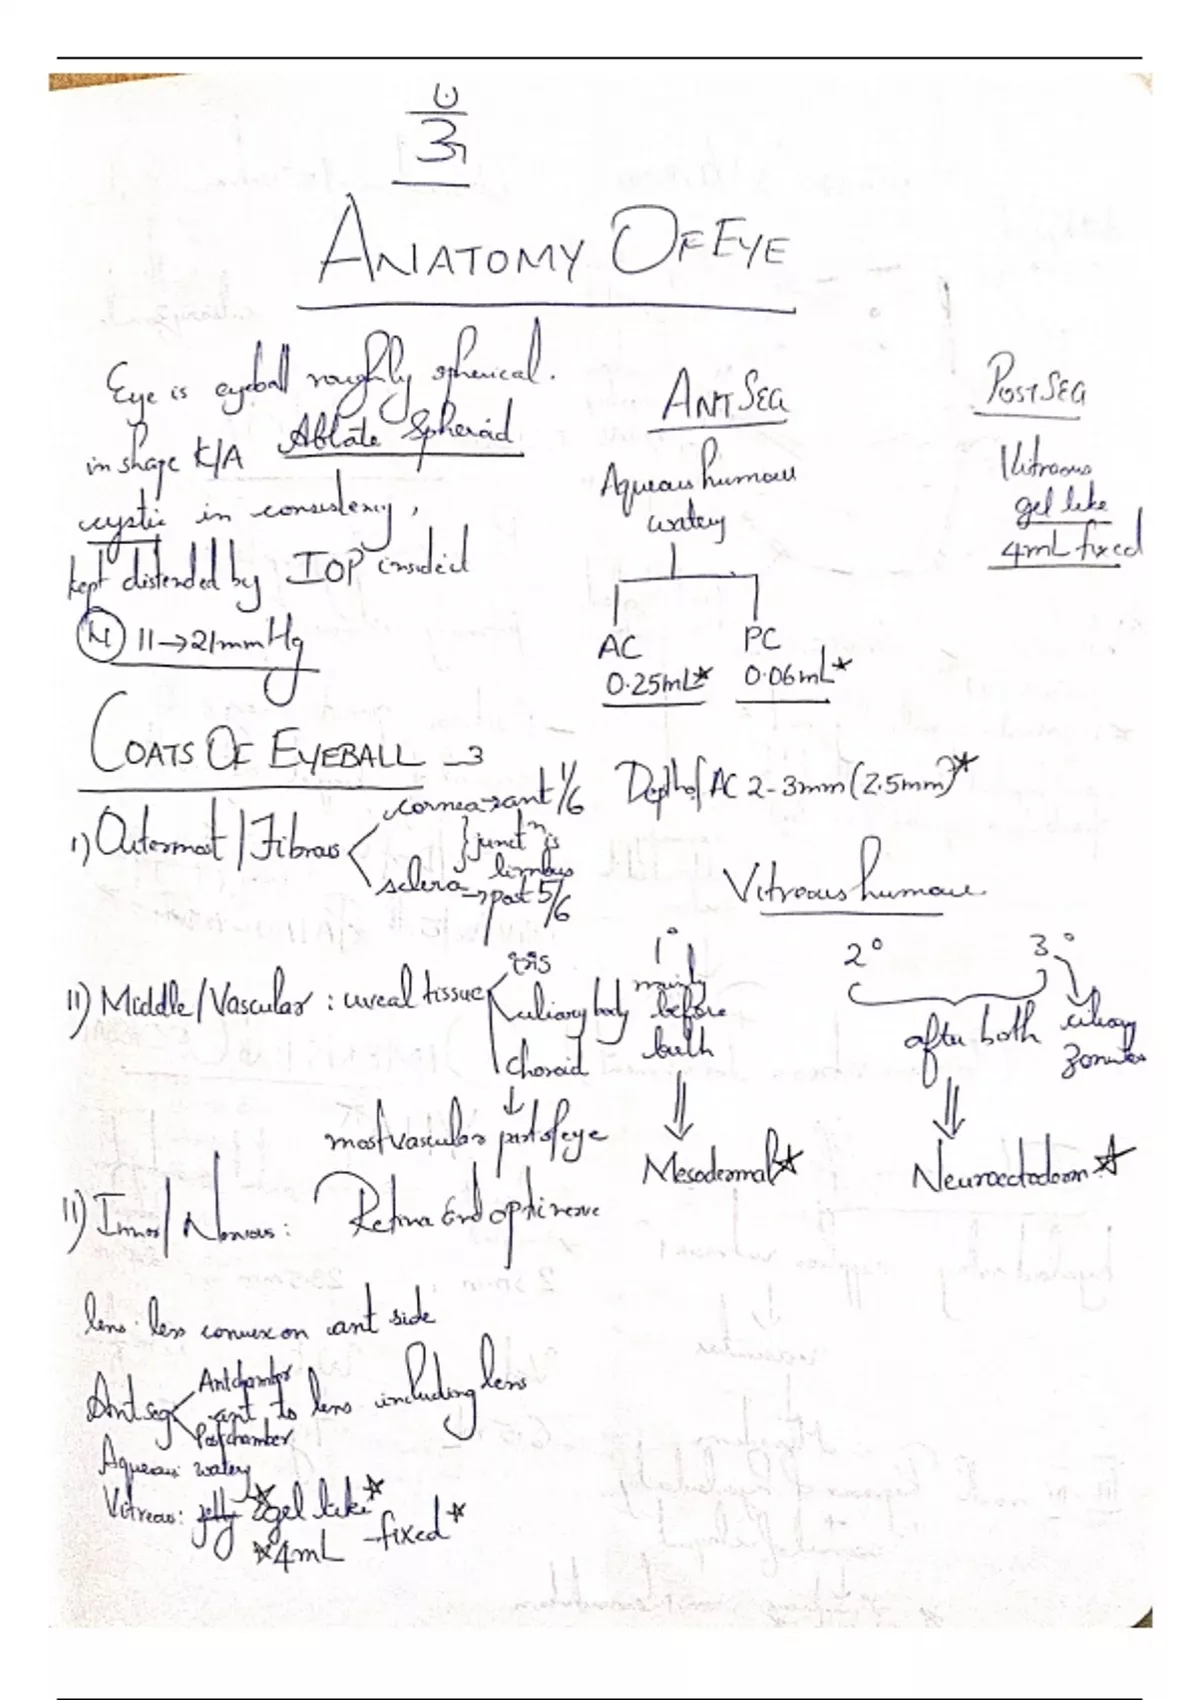 ANATOMY OF EYE
Eye is eyeball roughly spherical.
in shape K/A Ablate Spheroid
cystic in consistency,
kept distended by IOP inside it
(N) 11→21mmHg
ANT SEG
Aqueous humour
watery
AC
0.25mL*
PC
0.06mL*
POST SEG
Vitreous
gel like
4mL fixed
Depth of AC 2-3mm (2.5mm)*
COATS OF EYEBALL -3
I) Outermost / Fibrous
cornea→ant 1/6
} junctⁿ is
limbus
sclera→post 5/6
II) Middle/Vascular : uveal tissue
iris
ciliary body
choroid
↓
most vascular part of eye
II) Inner/ Nervous : Retina and optic nerve
Vitreous humour
1°
mainly
before
birth
⇓
Mesodermal☆
2° 3°
after both
ciliary
zonules
⇓
Neuroectoderm ☆
lens less convex on ant side
Ant seg
Ant chamber
ant to lens including lens
Post chamber
Aqueous: watery
Vitreous: jelly gel like*
*4mL -fixed*